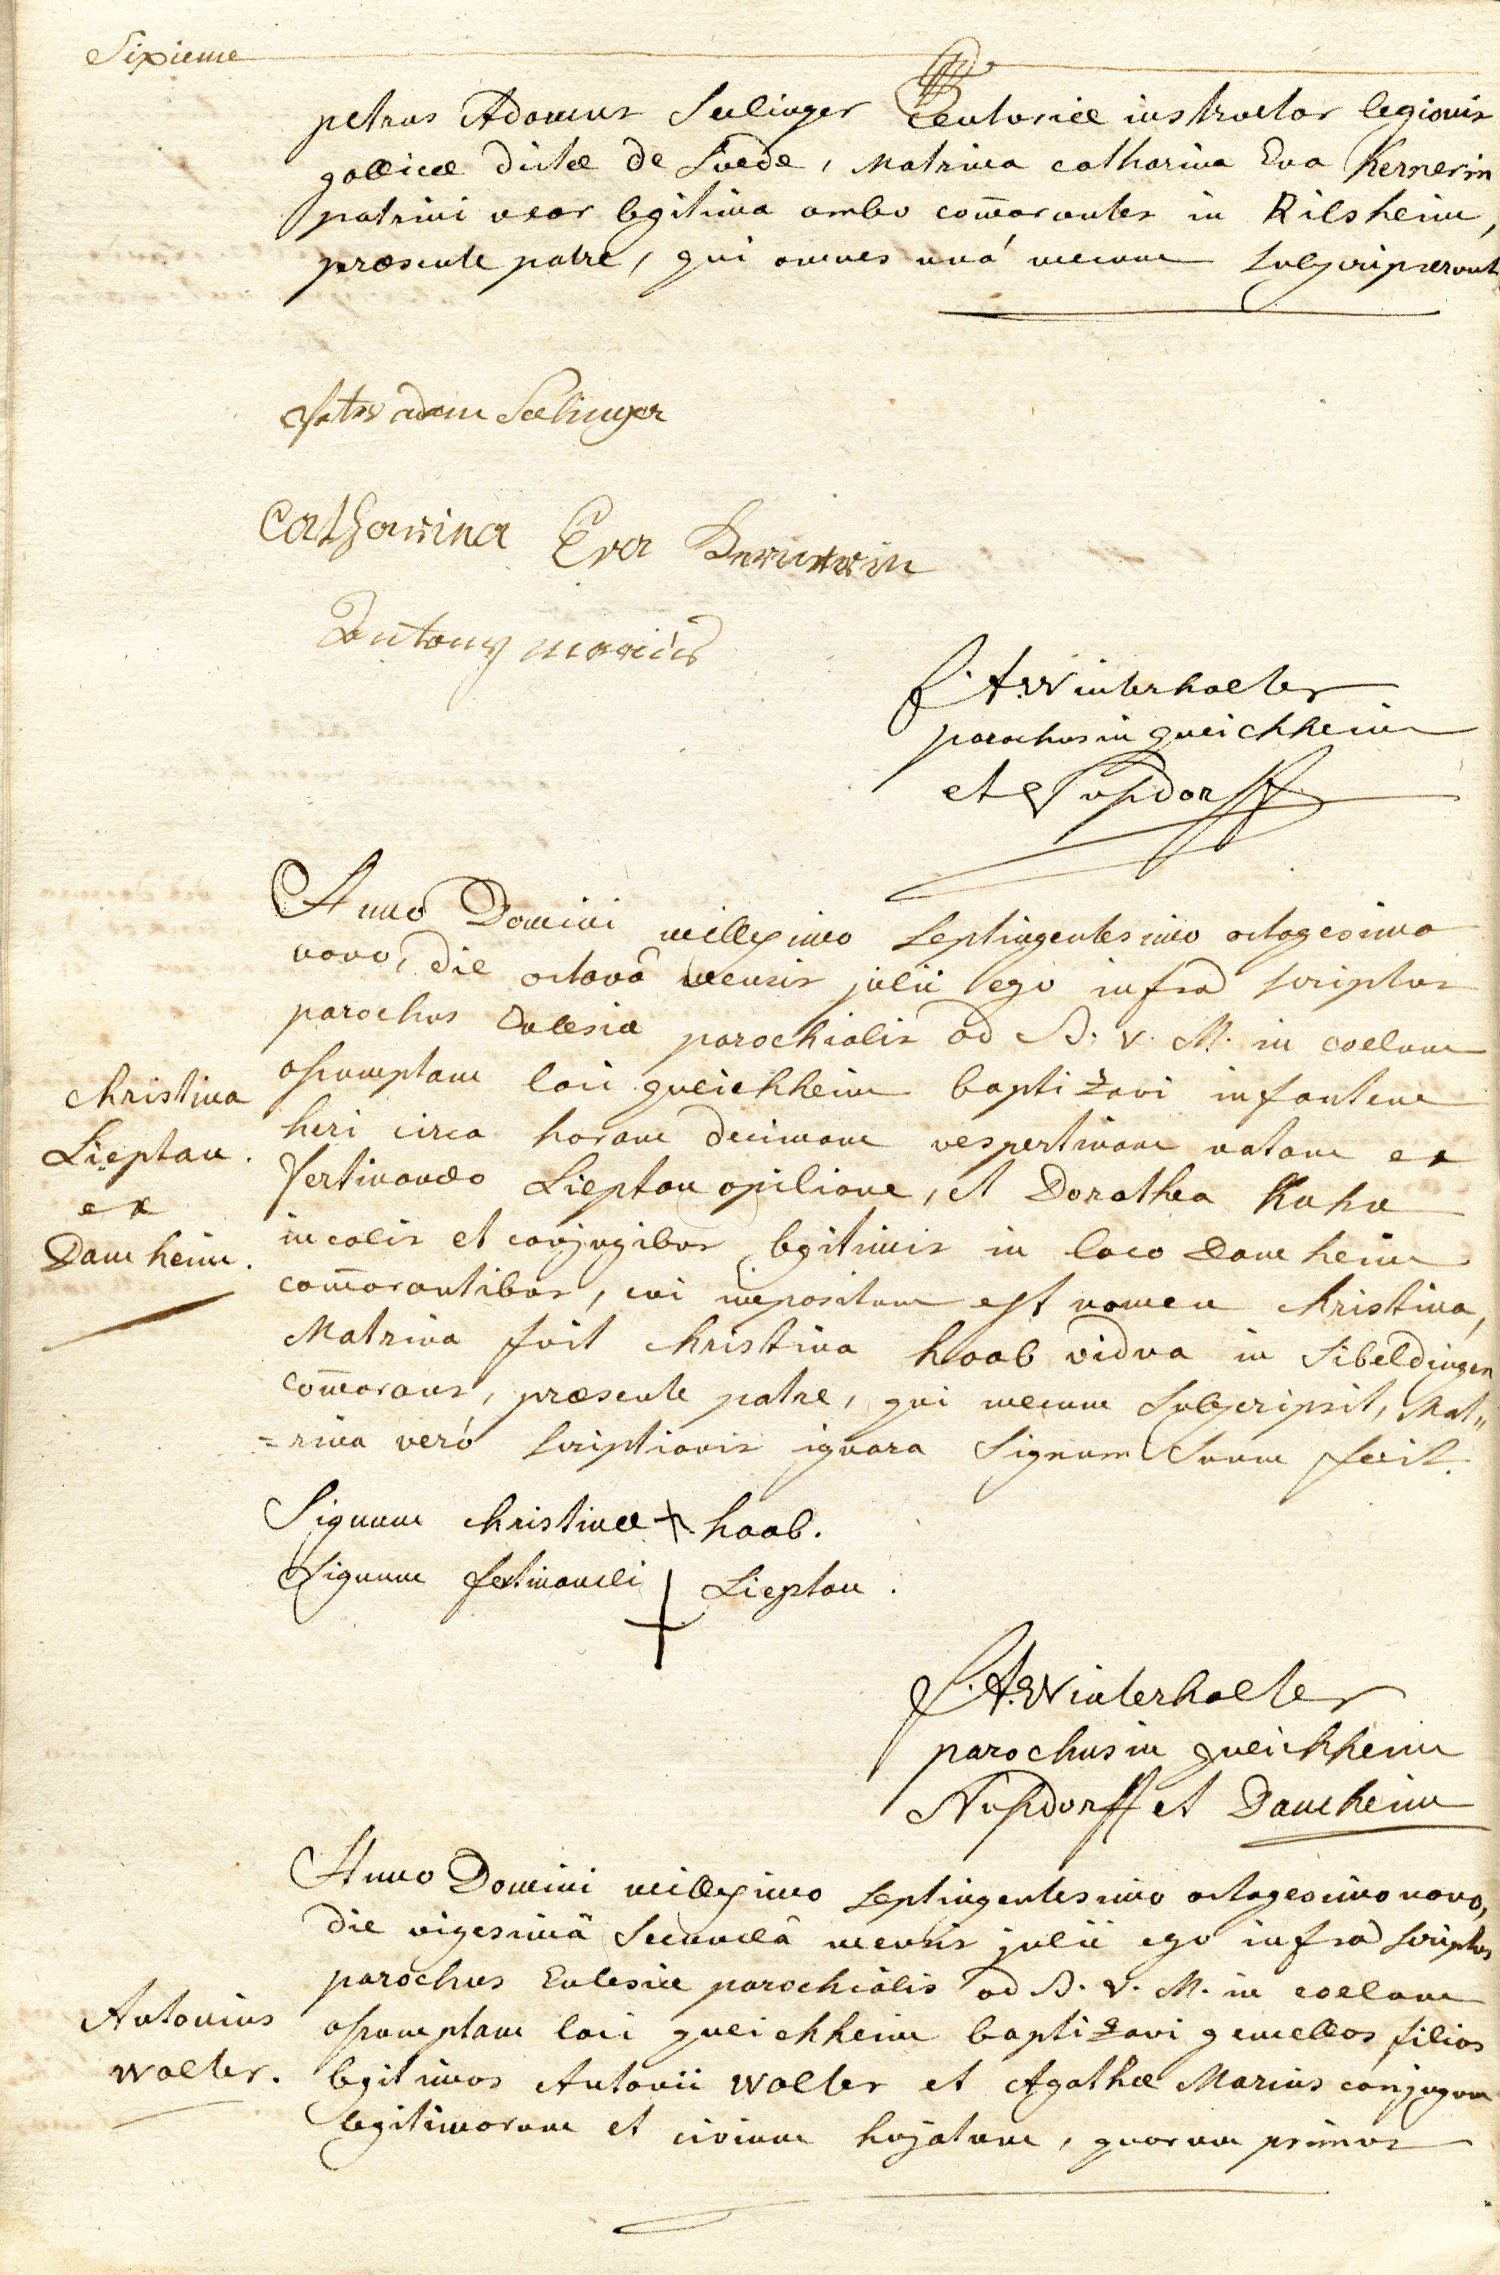 Sixieme
petrus Adamus Seelinger Centuriæ instructor legionis
gallicæ dictæ de Suede, Matrina catharina Eva Kernerin
patrini uxor legitima ambo com̄orantes in Rilsheim,
præsente patre, qui omnes unà mecum subscripserunt
Peter adam Seelinger
Catharina Eva Kernerin
Antony marius
F. A. Winterhalter
parochus in queichheim
et Nusdorff
Anno Domini millesimo septingentesimo octogesimo
nono, die octavâ mensis julii ego infra scriptus
parochus Ecclesiæ parochialis ad B. V. M. in coelum
assumptam loci queichheim baptizavi infantem
heri circa horam decimam vespertinam natam ex
fertinando Lieptau opilione, et Dorothea Kuhn
incolis et conjugibus legitimis in loco Damheim
com̄orantibus, cui impositum est nomen christina,
Matrina fuit christina haab vidua in Sibeldingen
com̄orans, præsente patre, qui mecum subscripsit, Mat„
=rina verò scriptionis ignara signum suum fecit.
Christina
Lieptau.
ex
Damheim.
Signum christinæ + haab.
Signum fertinandi + Lieptau.
F. A. Winterhalter
parochus in queichheim
Nusdorff et Damheim
Anno Domini millesimo septingentesimo octogesimo nono,
die vigesimâ secundâ mensis julii ego infra scriptus
parochus Ecclesiæ parochialis ad B. V. M. in coelum
assumptam loci queichheim baptizavi gemellos filios
legitimos Antonii Walter et Agathæ Marius conjugum
legitimorum et civium hujatum, quorum primus
Antonius
Walter.